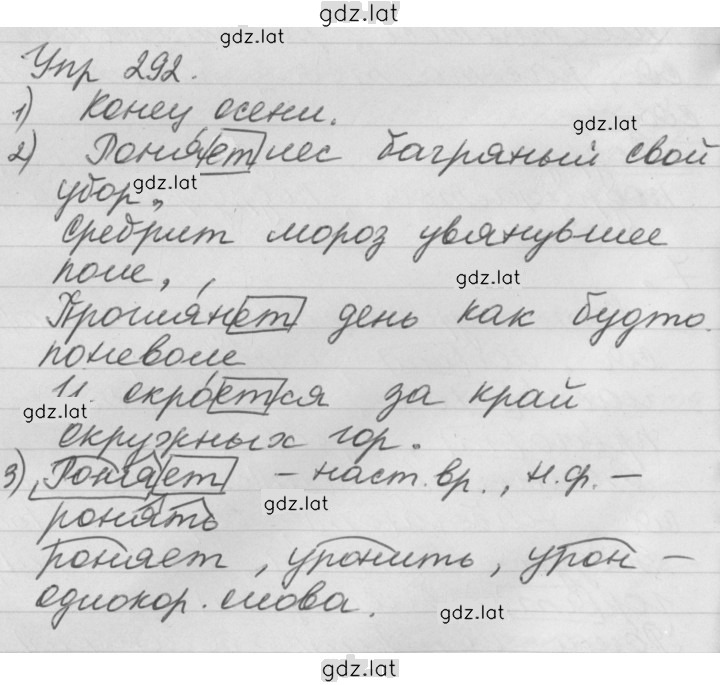 gdz.lat
gdz.lat
Упр 292.
1) Конец осени.
gdz.lat
2) Роняет лес багряный свой
убор,
gdz.lat
сребрит мороз увянувшее
поле,
gdz.lat
Проглянет день как будто
поневоле
И скроется за край
gdz.lat
окружных гор.
3) Роняет – наст. вр., н.ф. –
gdz.lat
ронять
роняет, уронить, урон –
однокор. слова.
gdz.lat
gdz.lat